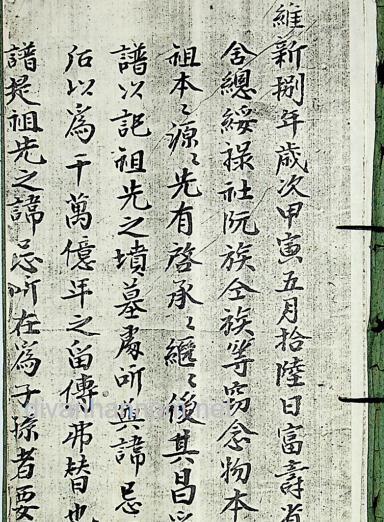 維新捌年歲次甲寅五月拾陸日富壽省
舍總綏祿社阮族仝族等窃念物本
祖本〻源〻先有啓承〻繼〻後其昌
譜以記祖先之墳墓處所與諱忌
以爲千萬億年之留傳弗替也
譜是祖先之諱忌所在爲子孫者要